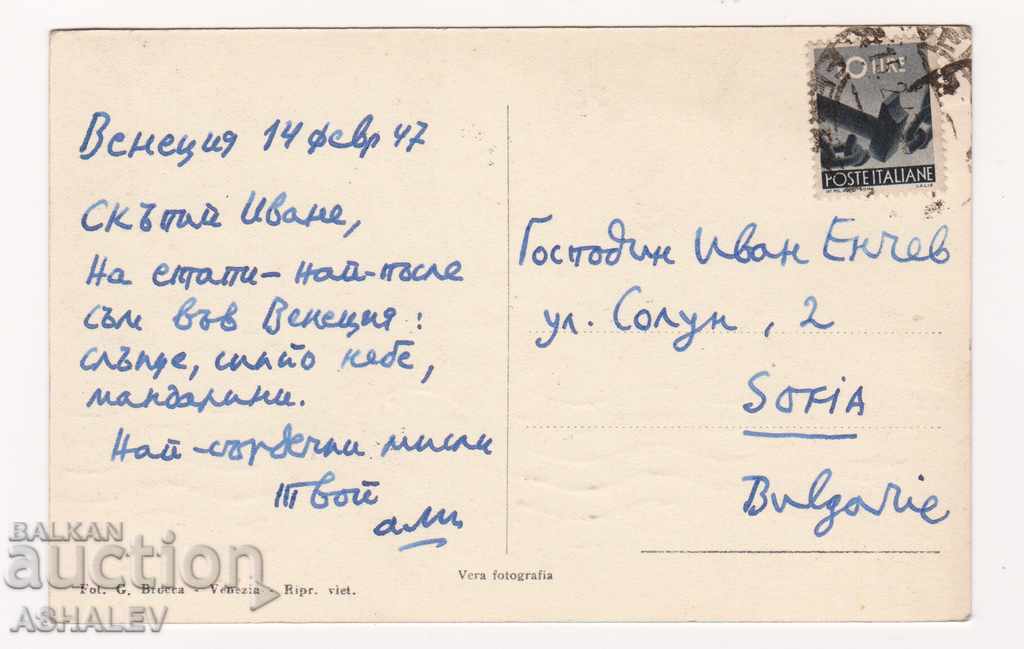 Венеция 14 февр 47
Скъпий Иване,
На стати - най-після
съм във Венеция:
слънце, синьо небе,
мандарини.
Най-сърдечни мисли
Твой
LIRE
POSTE ITALIANE
Господин Иван Енчев
ул. Солун, 2
SOFIA
Bulgarie
Vera fotografia
Fot. G. Brocca - Venezia - Ripr. viet.
BALKAN
auction
ASHALEV